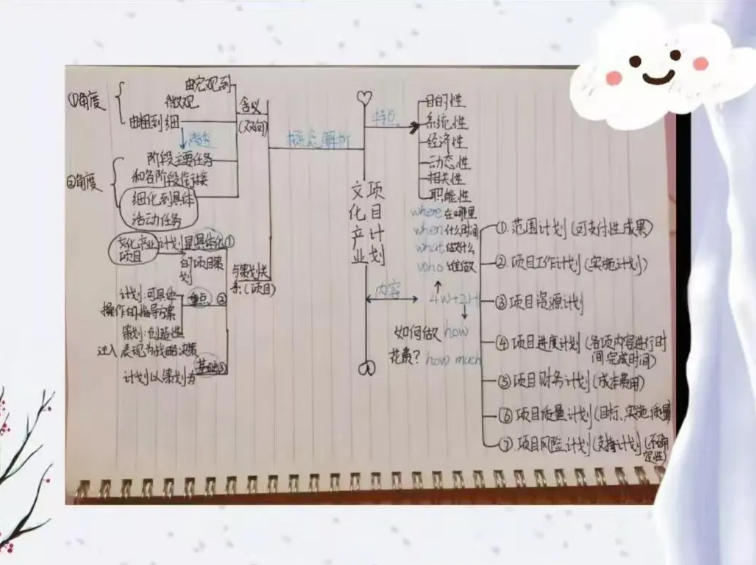 ①角度
由宏观到
微观
由粗到细
含义
(双向)
概念解析
②角度
阶段主要任务
和各阶段衔接
细化到具体
活动任务
文化产业
项目
计划是具体化①
的项目策
划
与策划关
系(项目)
计划:可具体
操作的指导方案
重点②
策划:创造性
表现为战略决策
基础③
计划以策划为
文化产业
项目计划
特点
目的性
系统性
经济性
动态性
相关性
职能性
内容
where在哪里
when什么时间
what做什么
who谁做
4W+2H
如何做how
花费?how much
①范围计划(可支付性成果)
②项目工作计划(实施计划)
③项目资源计划
④项目进度计划(各项内容进行时
间.完成时间)
⑤项目财务计划(成本费用)
⑥项目质量计划(目标、实施、质量)
⑦项目风险计划(支持计划)(不确
定性)